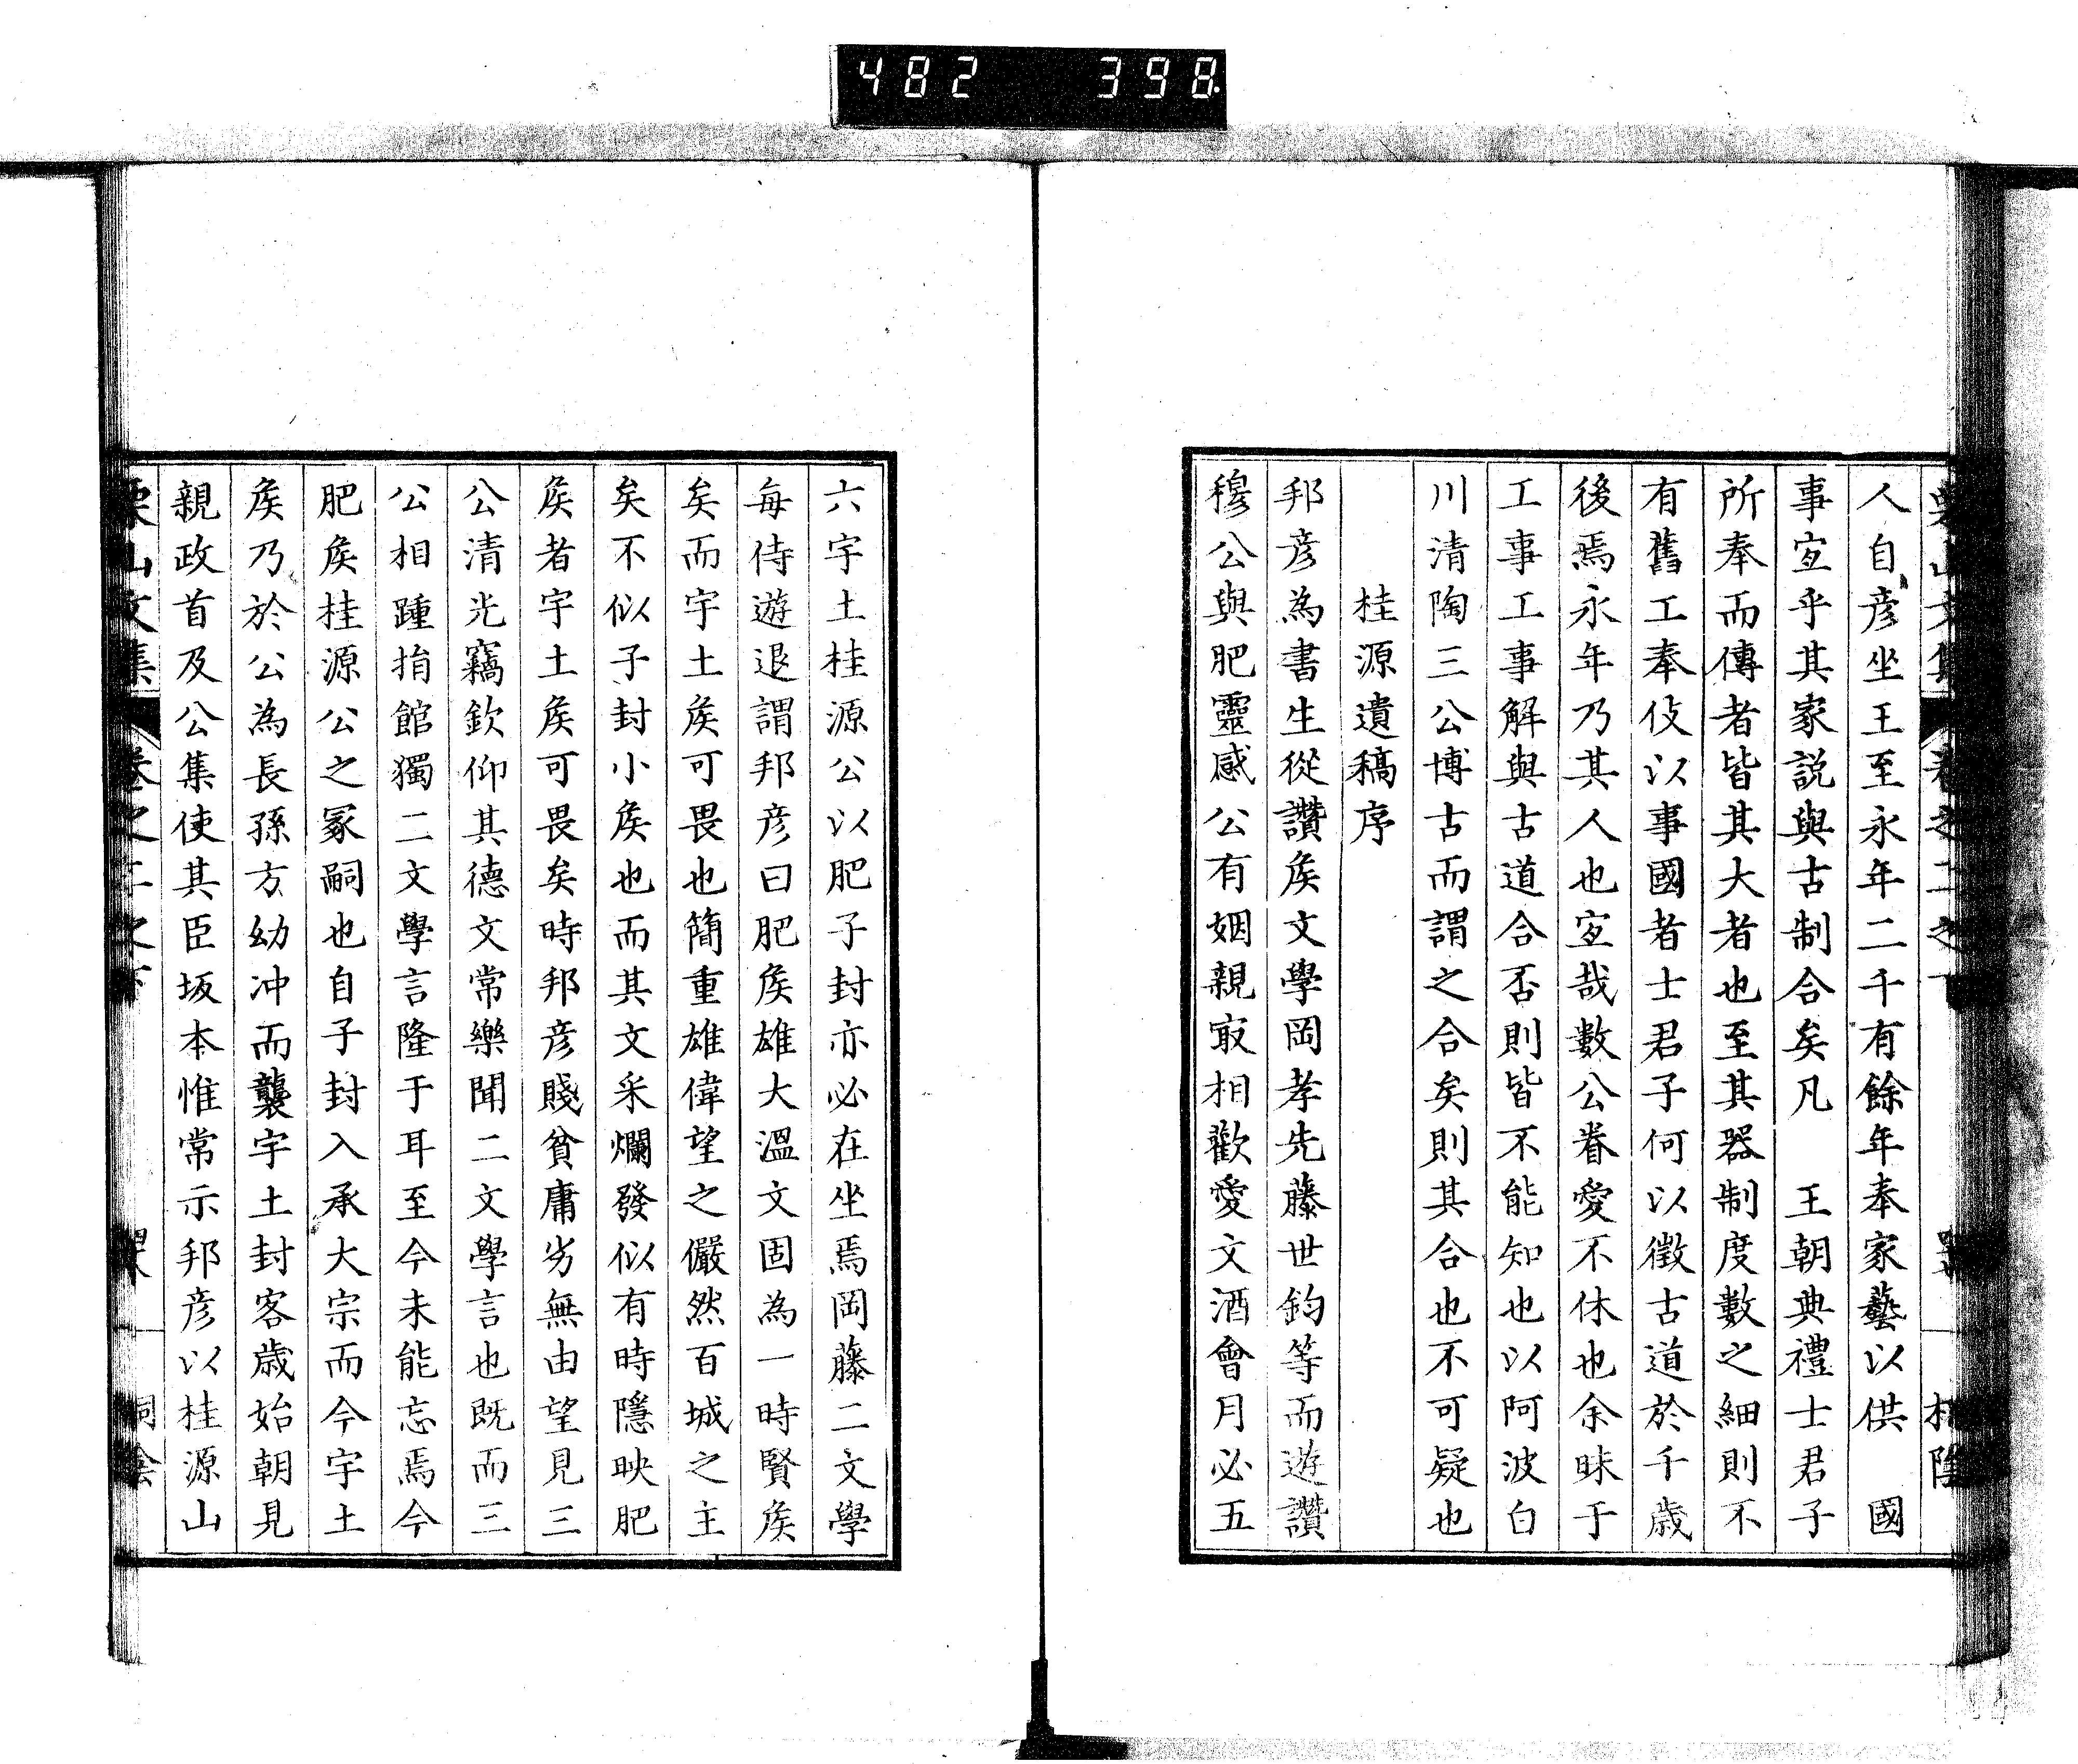 482 398
人自彦坐王至永年二千有餘年奉家藝以供 國
事宜乎其家説與古制合矣凡 王朝典禮士君子
所奉而傳者皆其大者也至其器制度數之細則不
有舊工奉伎以事國者士君子何以徵古道於千歳
後焉永年乃其人也宜哉數公眷愛不休也余昧于
工事工事解與古道合否則皆不能知也以阿波白
川清陶三公博古而謂之合矣則其合也不可疑也
桂源遺稿序
邦彦為書生從讚矦文學岡孝先藤世鈞等而遊讚
穆公與肥靈感公有姻親㝡相歡愛文酒會月必五
六宇土桂源公以肥子封亦必在坐焉岡藤二文學
毎侍遊退謂邦彦曰肥矦雄大溫文固為一時賢矦
矣而宇土矦可畏也簡重雄偉望之儼然百城之主
矣不似子封小矦也而其文采爛發似有時隱映肥
矦者宇土矦可畏矣時邦彦賤貧庸劣無由望見三
公清光竊欽仰其德文常樂聞二文學言也既而三
公相踵捐館獨二文學言隆于耳至今未能忘焉今
肥矦桂源公之冢嗣也自子封入承大宗而今宇土
矦乃於公為長孫方幼冲而襲宇土封客歳始朝見
親政首及公集使其臣坂本惟常示邦彦以桂源山
栗山文集 卷之二之下